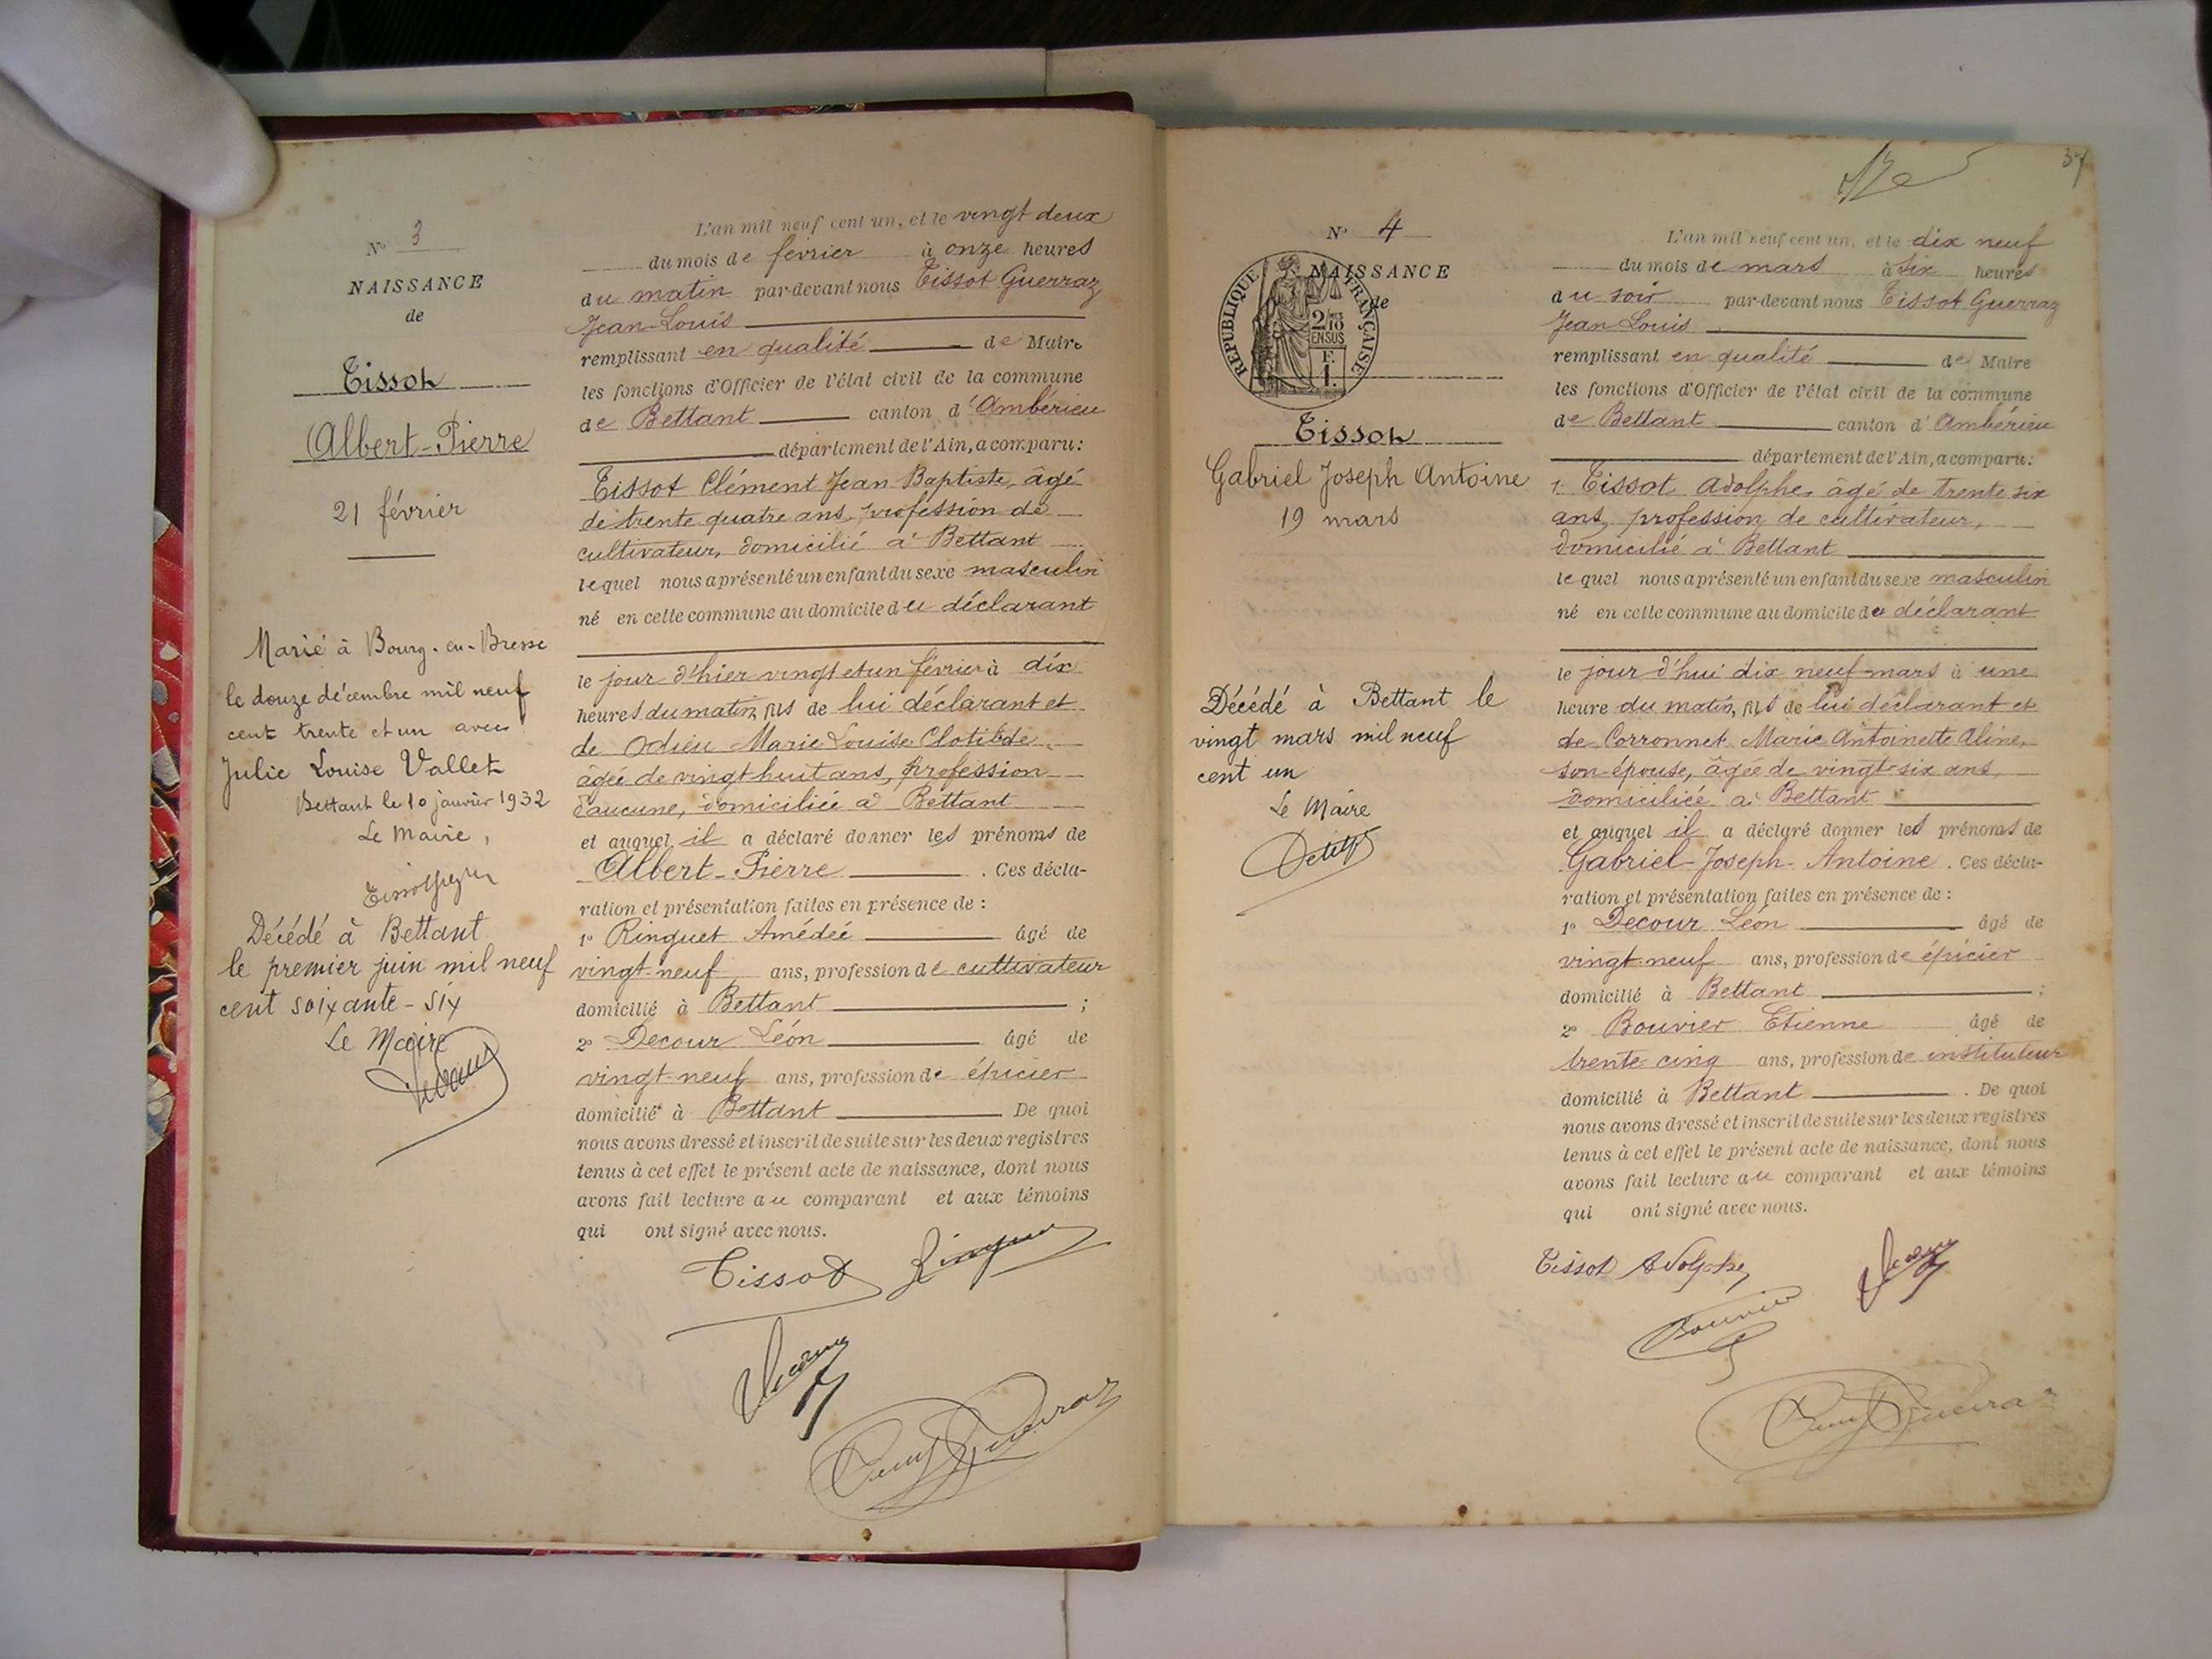 N° 3
NAISSANCE
de
Tissot
Albert-Pierre
21 février
Marié à Bourg-en-Bresse
le douze décembre mil neuf
cent trente et un avec
Julie Louise Vallet
Bettant le 10 janvier 1932
Le Maire,
Décédé à Bettant
le premier juin mil neuf
cent soixante-six
Le Maire
L'an mil neuf cent un, et le vingt deux
du mois de février à onze heures
du matin par-devant nous Tissot Guerraz
Jean-Louis
remplissant en qualité de Maire
les fonctions d'Officier de l'état civil de la commune
de Bettant canton d'Ambérieu
département de l'Ain, a comparu:
Tissot Clément Jean Baptiste, âgé
de trente quatre ans, profession de
cultivateur, domicilié à Bettant
lequel nous a présenté un enfant du sexe masculin
né en cette commune au domicile du déclarant
le jour d'hier vingt et un février à dix
heures du matin, fils de lui déclarant et
de Odieu Marie Louise Clotilde,
âgée de vingt huit ans, profession
d'aucune, domiciliée à Bettant
et auquel il a déclaré donner les prénoms de
Albert-Pierre. Ces décla-
ration et présentation faites en présence de :
1° Ringuet Amédée âgé de
vingt-neuf ans, profession de cultivateur
domicilié à Bettant ;
2° Decour Léon âgé de
vingt-neuf ans, profession de épicier
domicilié à Bettant De quoi
nous avons dressé et inscrit de suite sur les deux registres
tenus à cet effet le présent acte de naissance, dont nous
avons fait lecture au comparant et aux témoins
qui ont signé avec nous.
Tissot Ringuet
Decour
37
N° 4
NAISSANCE
de
RÉPUBLIQUE FRANÇAISE
2/10
EN SUS
F.
1.
Tissot
Gabriel Joseph Antoine
19 mars
Décédé à Bettant le
vingt mars mil neuf
cent un
Le Maire
L'an mil neuf cent un, et le dix neuf
du mois de mars à six heures
du soir par-devant nous Tissot Guerraz
Jean Louis
remplissant en qualité de Maire
les fonctions d'Officier de l'état civil de la commune
de Bettant canton d'Ambérieu
département de l'Ain, a comparu:
1. Tissot Adolphe, âgé de trente six
ans, profession de cultivateur,
domicilié à Bettant
lequel nous a présenté un enfant du sexe masculin
né en cette commune au domicile du déclarant
le jour d'hui dix neuf mars à une
heure du matin, fils de lui déclarant et
de Corronnet Marie Antoinette Aline,
son épouse, âgée de vingt-six ans,
domiciliée à Bettant
et auquel il a déclaré donner les prénoms de
Gabriel-Joseph-Antoine. Ces décla-
ration et présentation faites en présence de :
1° Decour Léon âgé de
vingt-neuf ans, profession de épicier
domicilié à Bettant ;
2° Bouvier Etienne âgé de
trente cinq ans, profession de instituteur
domicilié à Bettant. De quoi
nous avons dressé et inscrit de suite sur les deux registres
tenus à cet effet le présent acte de naissance, dont nous
avons fait lecture au comparant et aux témoins
qui ont signé avec nous.
Tissot Adolphe Decour
Bouvier